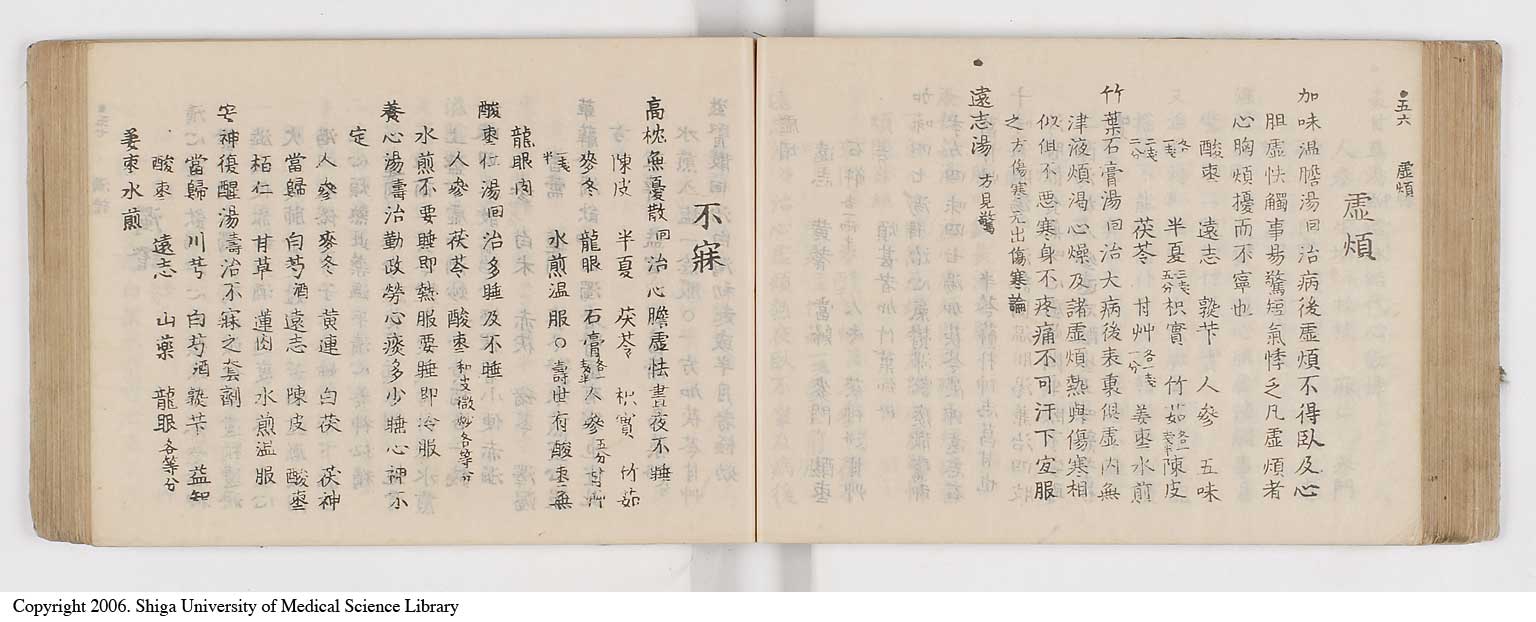 五六　虚煩
虚煩
加味温膽湯回治病後虚煩不得臥及心
胆虚怯觸事易驚短氣悸乏凡虚煩者
心胸煩擾而不寧也
酸棗　遠志　熟芐　人參　五味
半夏　枳實　竹茹　陳皮
茯苓　甘艸　各一戔　姜棗水煎
竹葉石膏湯回治大病後表裏俱虚内無
津液煩渇心燥及諸虚煩熱與傷寒相
似俱不悪寒身不疼痛不可汗下宜服
之方傷寒元出傷寒論
遠志湯　方見驚
不寐
高枕無憂散回治心膽虚怯晝夜不睡
陳皮　半夏　茯苓　枳實　竹茹
麥冬　龍眼　石膏　人參　五分　甘艸
水煎温服〇壽世有酸棗無
龍眼肉
酸棗仁湯回治多睡及不睡
人參　茯苓　酸棗　和皮微炒各等分
水煎不要睡即熱服要睡即冷服
養心湯壽治勤政勞心痰多少睡心神不
定
人參　麥冬　黄連　白茯　茯神
當歸　白芍酒　遠志　陳皮　酸棗
栢仁　甘草　蓮肉　水煎温服
安神復醒湯壽治不寐之套劑
當歸　川芎　白芍酒　熟芐　益智
酸棗　遠志　山藥　龍眼各等分
姜棗水煎
Copyright 2006. Shiga University of Medical Science Library